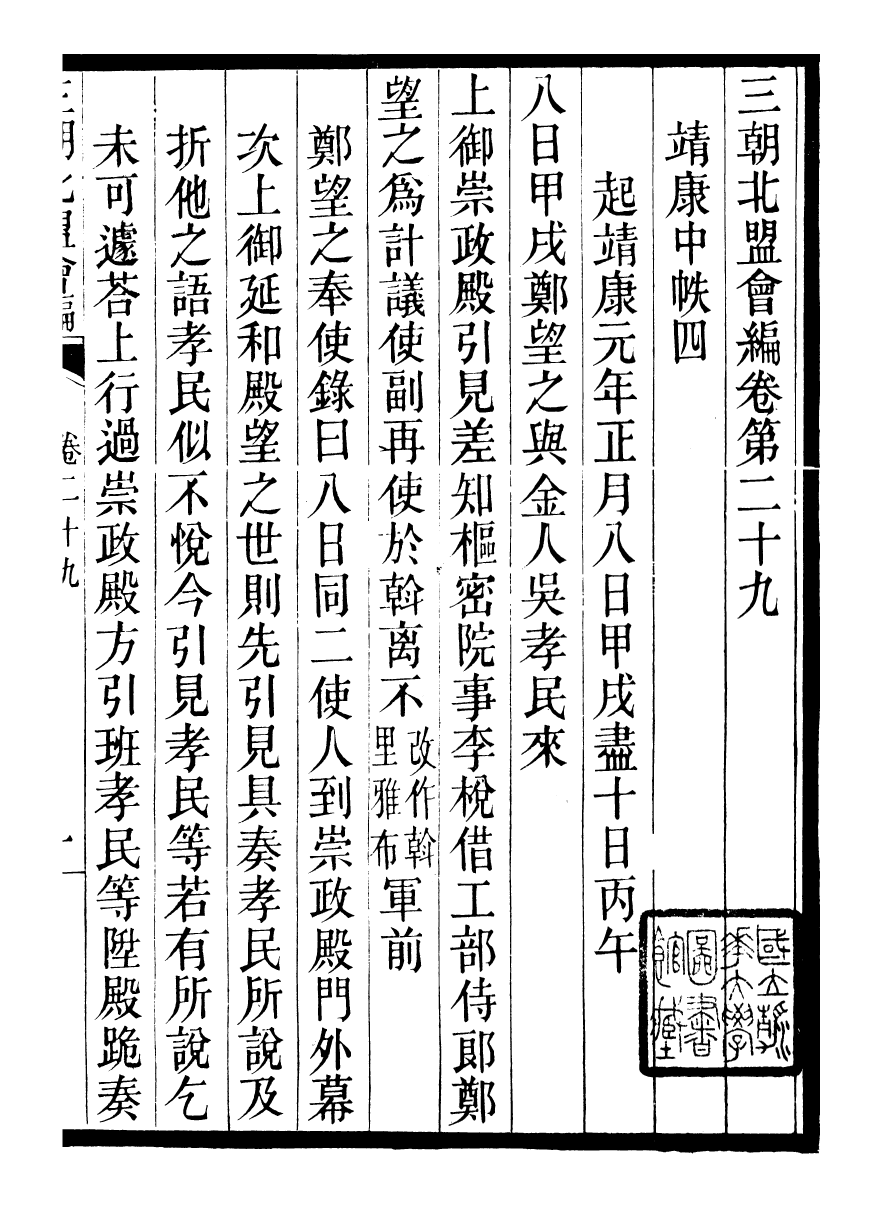 三朝北盟會編卷第二十九
靖康中帙四
起靖康元年正月八日甲戌盡十日丙午
八日甲戌鄭望之與金人吳孝民來
上御崇政殿引見差知樞密院事李梲借工部侍郞鄭
望之爲計議使副再使於斡离不改作斡里雅布軍前
鄭望之奉使錄曰八日同二使人到崇政殿門外幕
次上御延和殿望之世則先引見具奏孝民所說及
折他之語孝民似不悅今引見孝民等若有所說乞
未可遽荅上行過崇政殿方引班孝民等陞殿跪奏
三朝北盟會編
卷二十九
一
國立清
華大學
圖書
館藏